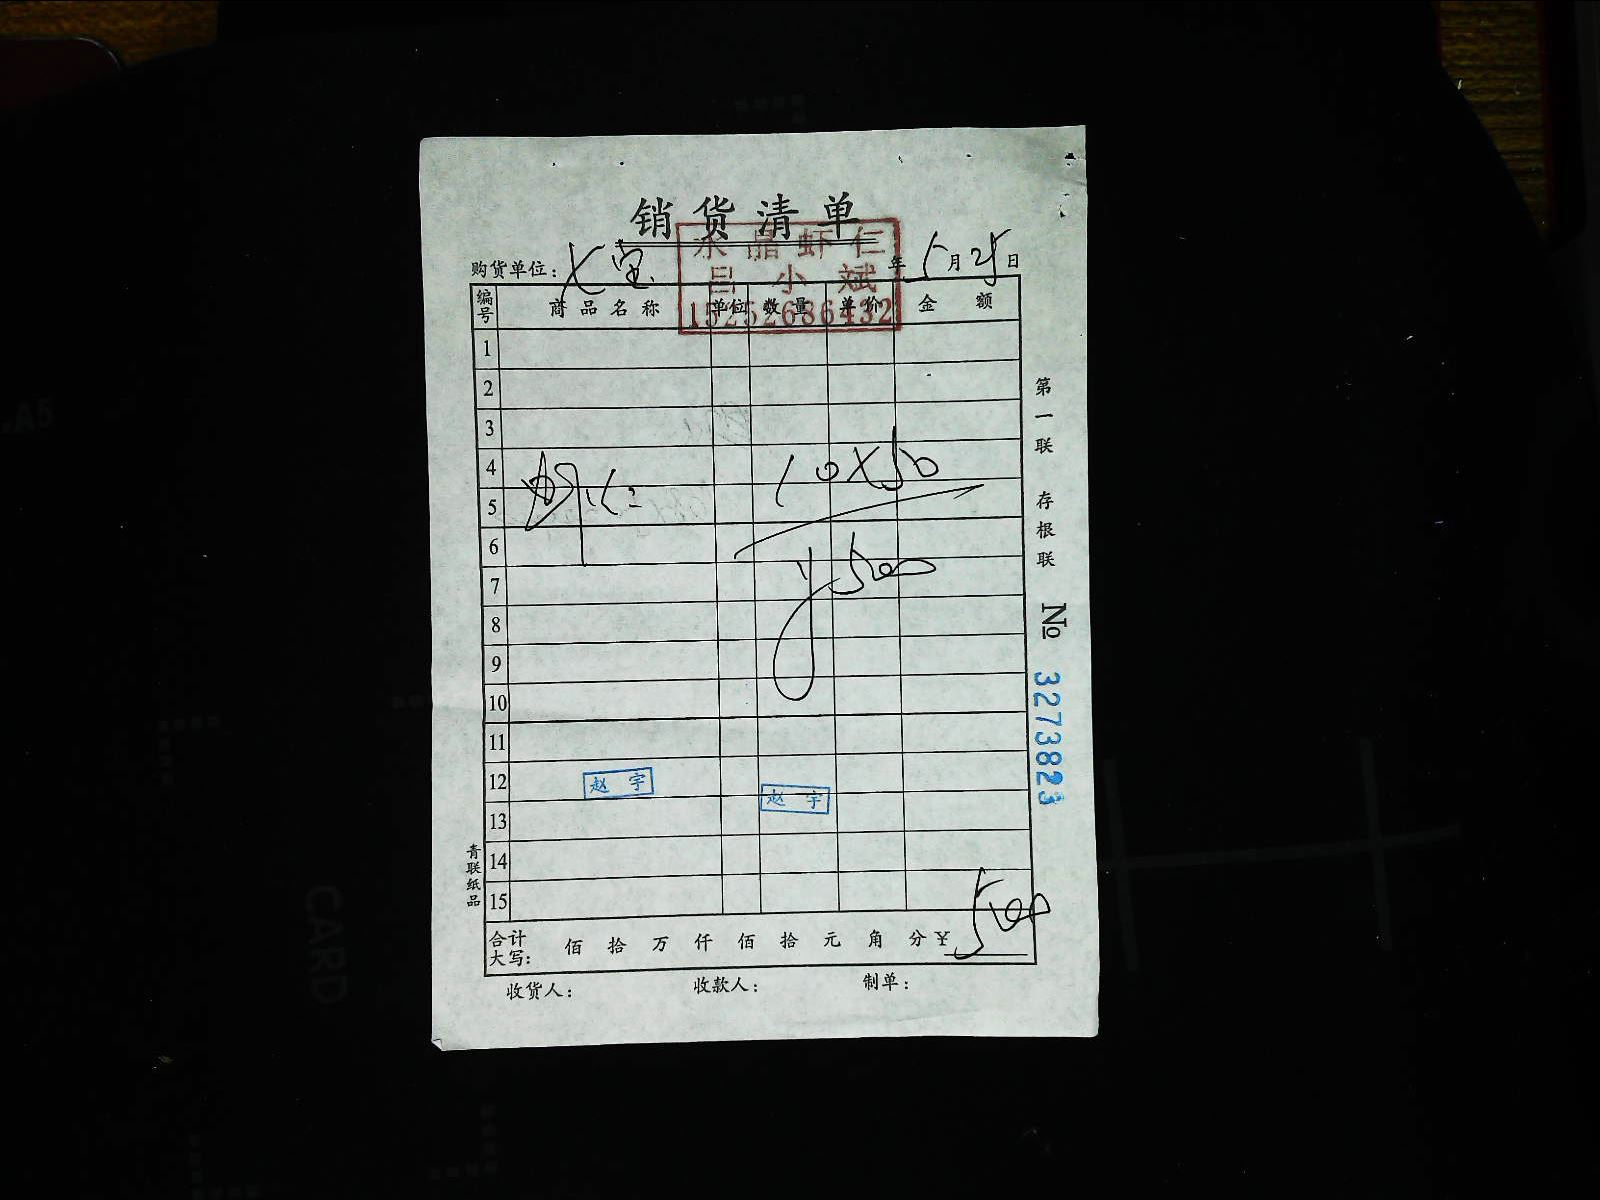 销货清单
水晶虾仁
吕小斌
15252686432
购货单位：七宝 年5月25日
编号 商品名称 单位 数量 单价 金额
1
2
3
4 虾仁 10X50
5
6
7 ¥500
8
9
10
11
12 赵宇 赵宇
13
14
15
合计大写： 佰 拾 万 仟 佰 拾 元 角 分 ¥ 500
收货人： 收款人： 制单：
第一联 存根联 № 3273823
青联纸品
A5
CARD